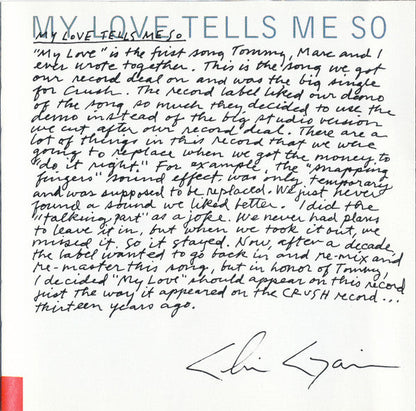 MY LOVE TELLS ME SO
MY LOVE TELLS ME SO
"My Love" is the first song Tommy, Marc and I
ever wrote together. This is the song we got
our record deal on and was the big single
for Crush. The record label liked our demo
of the song so much they decided to use the
demo instead of the big studio version
we cut after our record deal. There are a
lot of things in this record that we were
going to replace when we got the money to
"do it right." For example, the "snapping
fingers" sound effect was only temporary
and was supposed to be replaced. We just never
found a sound we liked better. I did the
"talking part" as a joke. We never had plans
to leave it in, but when we took it out, we
missed it. So it stayed. Now, after a decade
the label wanted to go back in and re-mix and
re-master this song, but in honor of Tommy,
I decided "My Love" should appear on this record
just the way it appeared on the CRUSH record...
thirteen years ago.
Chris Gaines